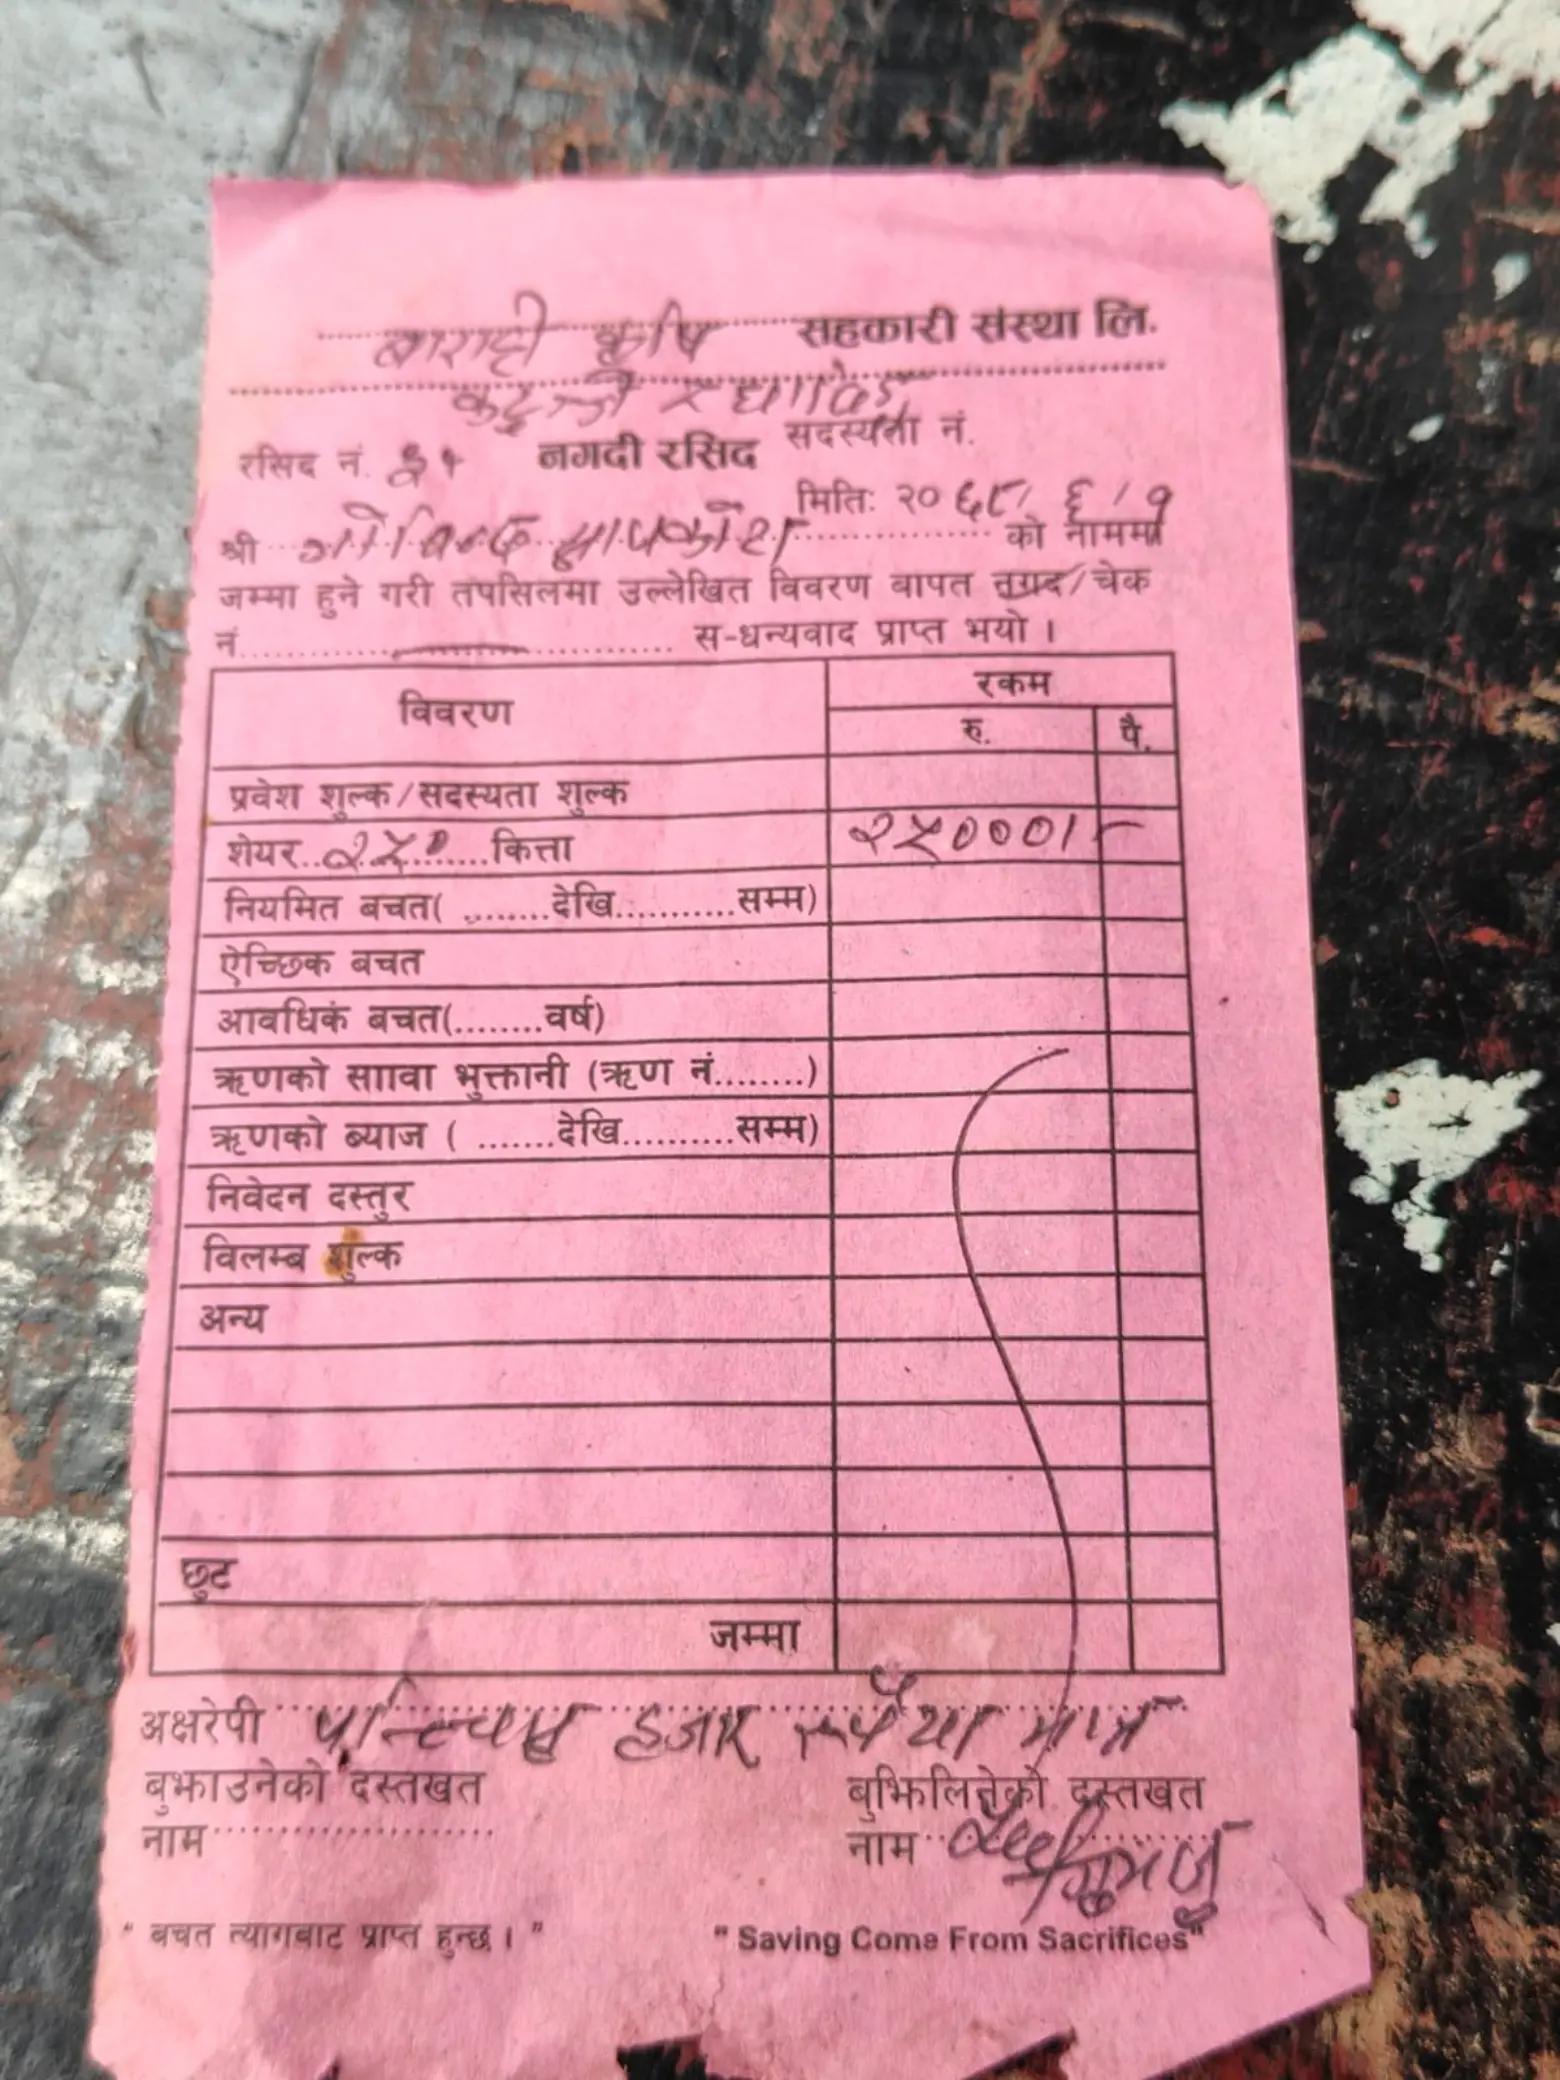 बाराही कृषि सहकारी संस्था लि.
कटुन्जे
रसिद नं. ३५ नगदी रसिद सदस्यता नं.
मिति: २०६८/६/७
श्री गोविन्द सापकोटा को नाममा
जम्मा हुने गरी तपसिलमा उल्लेखित विवरण वापत नगद/चेक
नं.......................... स-धन्यवाद प्राप्त भयो ।
विवरण रकम
रु. पै.
प्रवेश शुल्क/सदस्यता शुल्क
शेयर..२५०.......कित्ता २५०००/-
नियमित बचत( ........देखि...........सम्म)
ऐच्छिक बचत
आवधिकं बचत(........वर्ष)
ऋणको साावा भुक्तानी (ऋण नं........)
ऋणको ब्याज ( .......देखि..........सम्म)
निवेदन दस्तुर
विलम्ब शुल्क
अन्य
छुट
जम्मा
अक्षरेपी हजार रूपैया मात्र
बुझाउनेको दस्तखत बुझिलिनेको दस्तखत
नाम...................... नाम
" बचत त्यागबाट प्राप्त हुन्छ । " " Saving Come From Sacrifices"